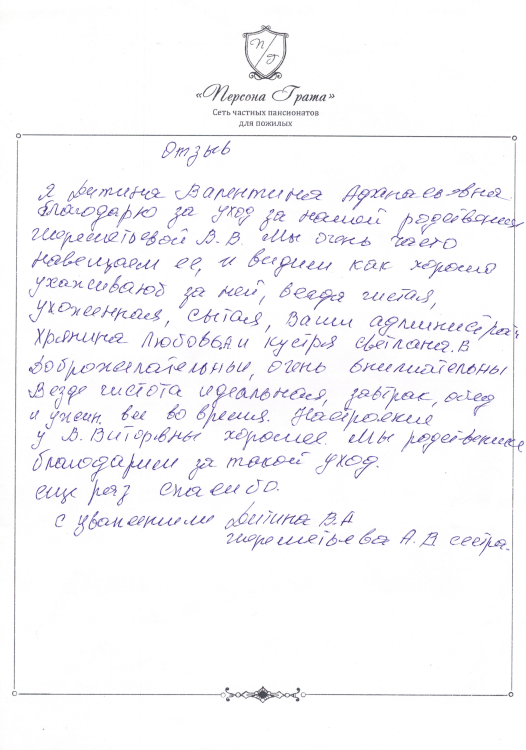 П Г
«Персона Грата»
Сеть частных пансионатов
для пожилых
Отзыв
Я Дитина Валентина Афанасьевна
благодарю за уход за нашей родственицей
Шереметьевой В. В. Мы очень часто
навещаем ее, и видим как хорошо
ухаживают за ней, всегда чистая,
ухоженная, сытая, Ваши администрат
Хрянина Любовь и Светлана. В
доброжелательны, очень внимательны
Везде чистота идеальная, завтрак, обед
и ужин все во время. Настроение
у В. хорошее. Мы родственики
благодарим за такой уход.
еще раз спасибо.
С уважением Дитина В.А
Шереметьева А. В сестра.